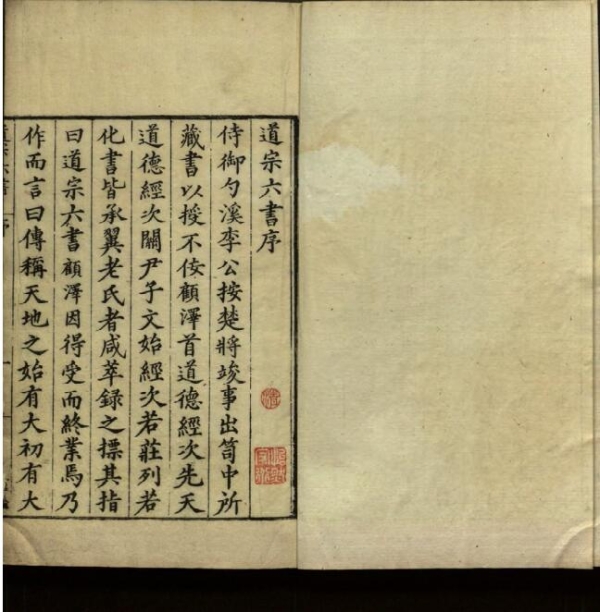 道宗六書序
侍御勺溪李公按楚將竣事出笥中所
藏書以授不佞顧澤首道德經次先天
道德經次關尹子文始經次若莊列若
化書皆承翼老氏者咸萃錄之摽其指
曰道宗六書顧澤因得受而終業焉乃
作而言曰傳稱天地之始有大初有大